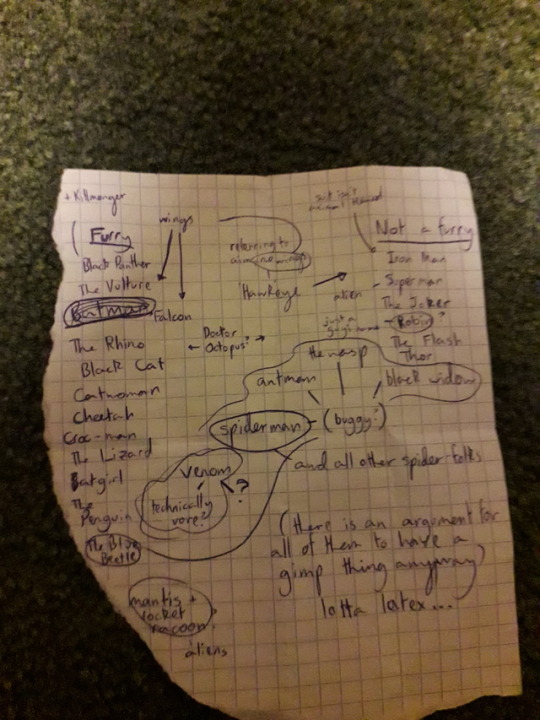 + Killmonger
Furry
Black Panther
The Vulture
Batman
The Rhino
Black Cat
Catwoman
Cheetah
Croc-man
The Lizard
Batgirl
The
Penguin
The Blue
Beetle
wings
Falcon
Doctor
Octopus?
referring to
aim, no wings
Hawkeye
suit isn't
animal themed
Not a furry
Iron Man
alien
Superman
The Joker
just a
guy's name
Robin?
The Flash
Thor
the wasp
antman
black widow
spiderman
(buggy?)
and all other spider-folks
venom
?
technically
vore?
(there is an argument for
all of them to have a
gimp thing anyway)
lotta latex...
mantis +
rocket
racoon?
aliens